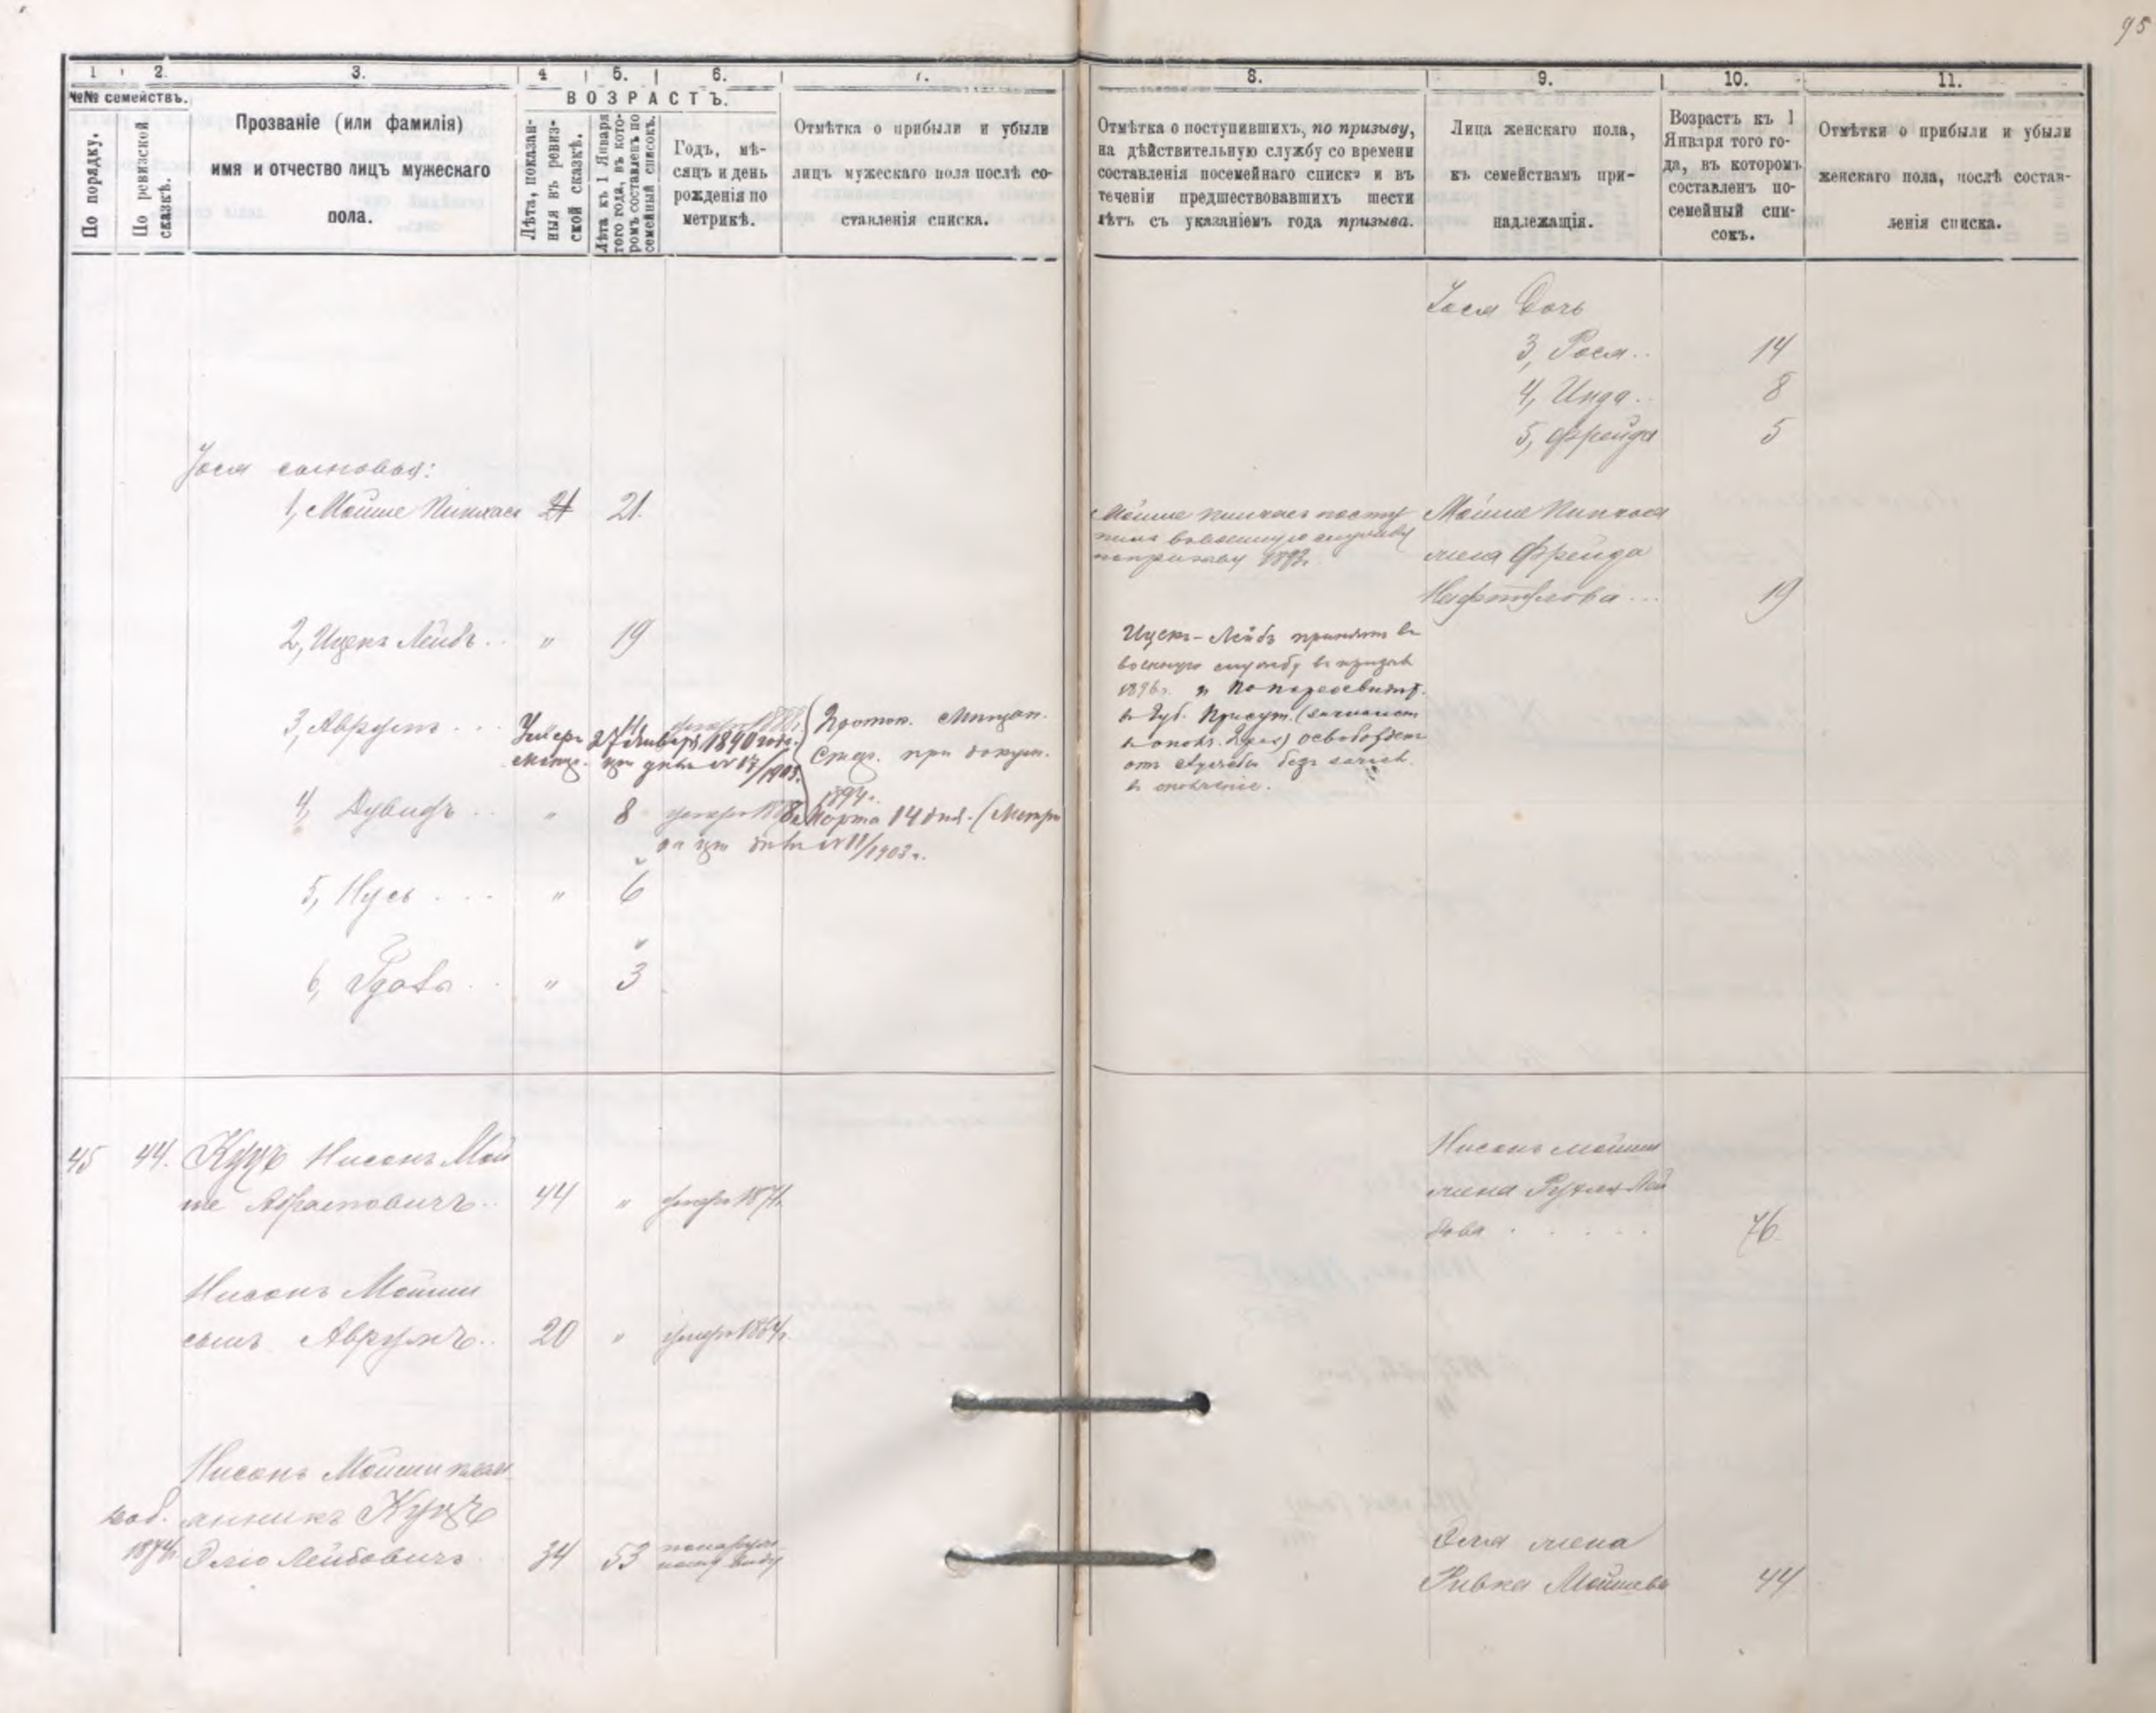 95
1 2. 3. 4 5. 6. 7. 8. 9. 10. 11.
№№ семействъ.
По порядку.
По ревизской сказкѣ.
Прозваніе (или фамилія)
имя и отчество лицъ мужескаго
пола.
ВОЗРАСТЪ.
Лѣта, показан-
ныя въ ревиз-
ской сказкѣ.
Лѣта къ 1 Января
того года, въ кото-
ромъ составленъ по
семейный списокъ.
Годъ, мѣ-
сяцъ и день
рожденія по
метрикѣ.
Отмѣтка о прибыли и убыли
лицъ мужескаго пола послѣ со-
ставленія списка.
Отмѣтка о поступившихъ, по призыву,
на дѣйствительную службу со времени
составленія посемейнаго списка и въ
теченіи предшествовавшихъ шести
лѣтъ съ указаніемъ года призыва.
Лица женскаго пола,
къ семействамъ при-
надлежащія.
Возрастъ къ 1
Января того го-
да, въ которомъ
составленъ по-
семейный спи-
сокъ.
Отмѣтки о прибыли и убыли
женскаго пола, послѣ состав-
ленія списка.
Іося Дочь
3, Рося.. 14
4, Инда.. 8
5, Фрейда 5
Іося сыновья:
1, Мойше Пинхас 21 21.
Мойше Пинхасъ посту
пилъ въ военную службу
по призыву 1892г.
Мойше Пинхаса
жена Фрейда
Нафтулова... 19
2, Ицекъ Лейбъ.. " 19
Ицекъ-Лейбъ принятъ въ
военную службу въ призывѣ
1896г. и по переосвидѣт.
въ Губ. Присут. освобожденъ
отъ службы безъ зачисл.
въ ополченіе.
3, Аврумъ...
Умеръ 27 Января 1890 года.
4, Дувидъ.. " 8
1894г.
Марта 14 дня. (Метри
№11/1903г.
5, Нусь... " 6
6, " 3
45 44. Куцъ Нисонъ Мой
ше Абрамовичъ.. 44 " умеръ 1871г.
Нисонъ Мойши
жена Рухля Лей
бова..... 76.
Нисонъ Мойши
сынъ Аврумъ.. 20 " умеръ 1864г.
Нисонъ Мойши плем
янникъ Куцъ
1874г. Эліо Лейбовичъ 34 53
Эліи жена
Ривка Мойшева 44